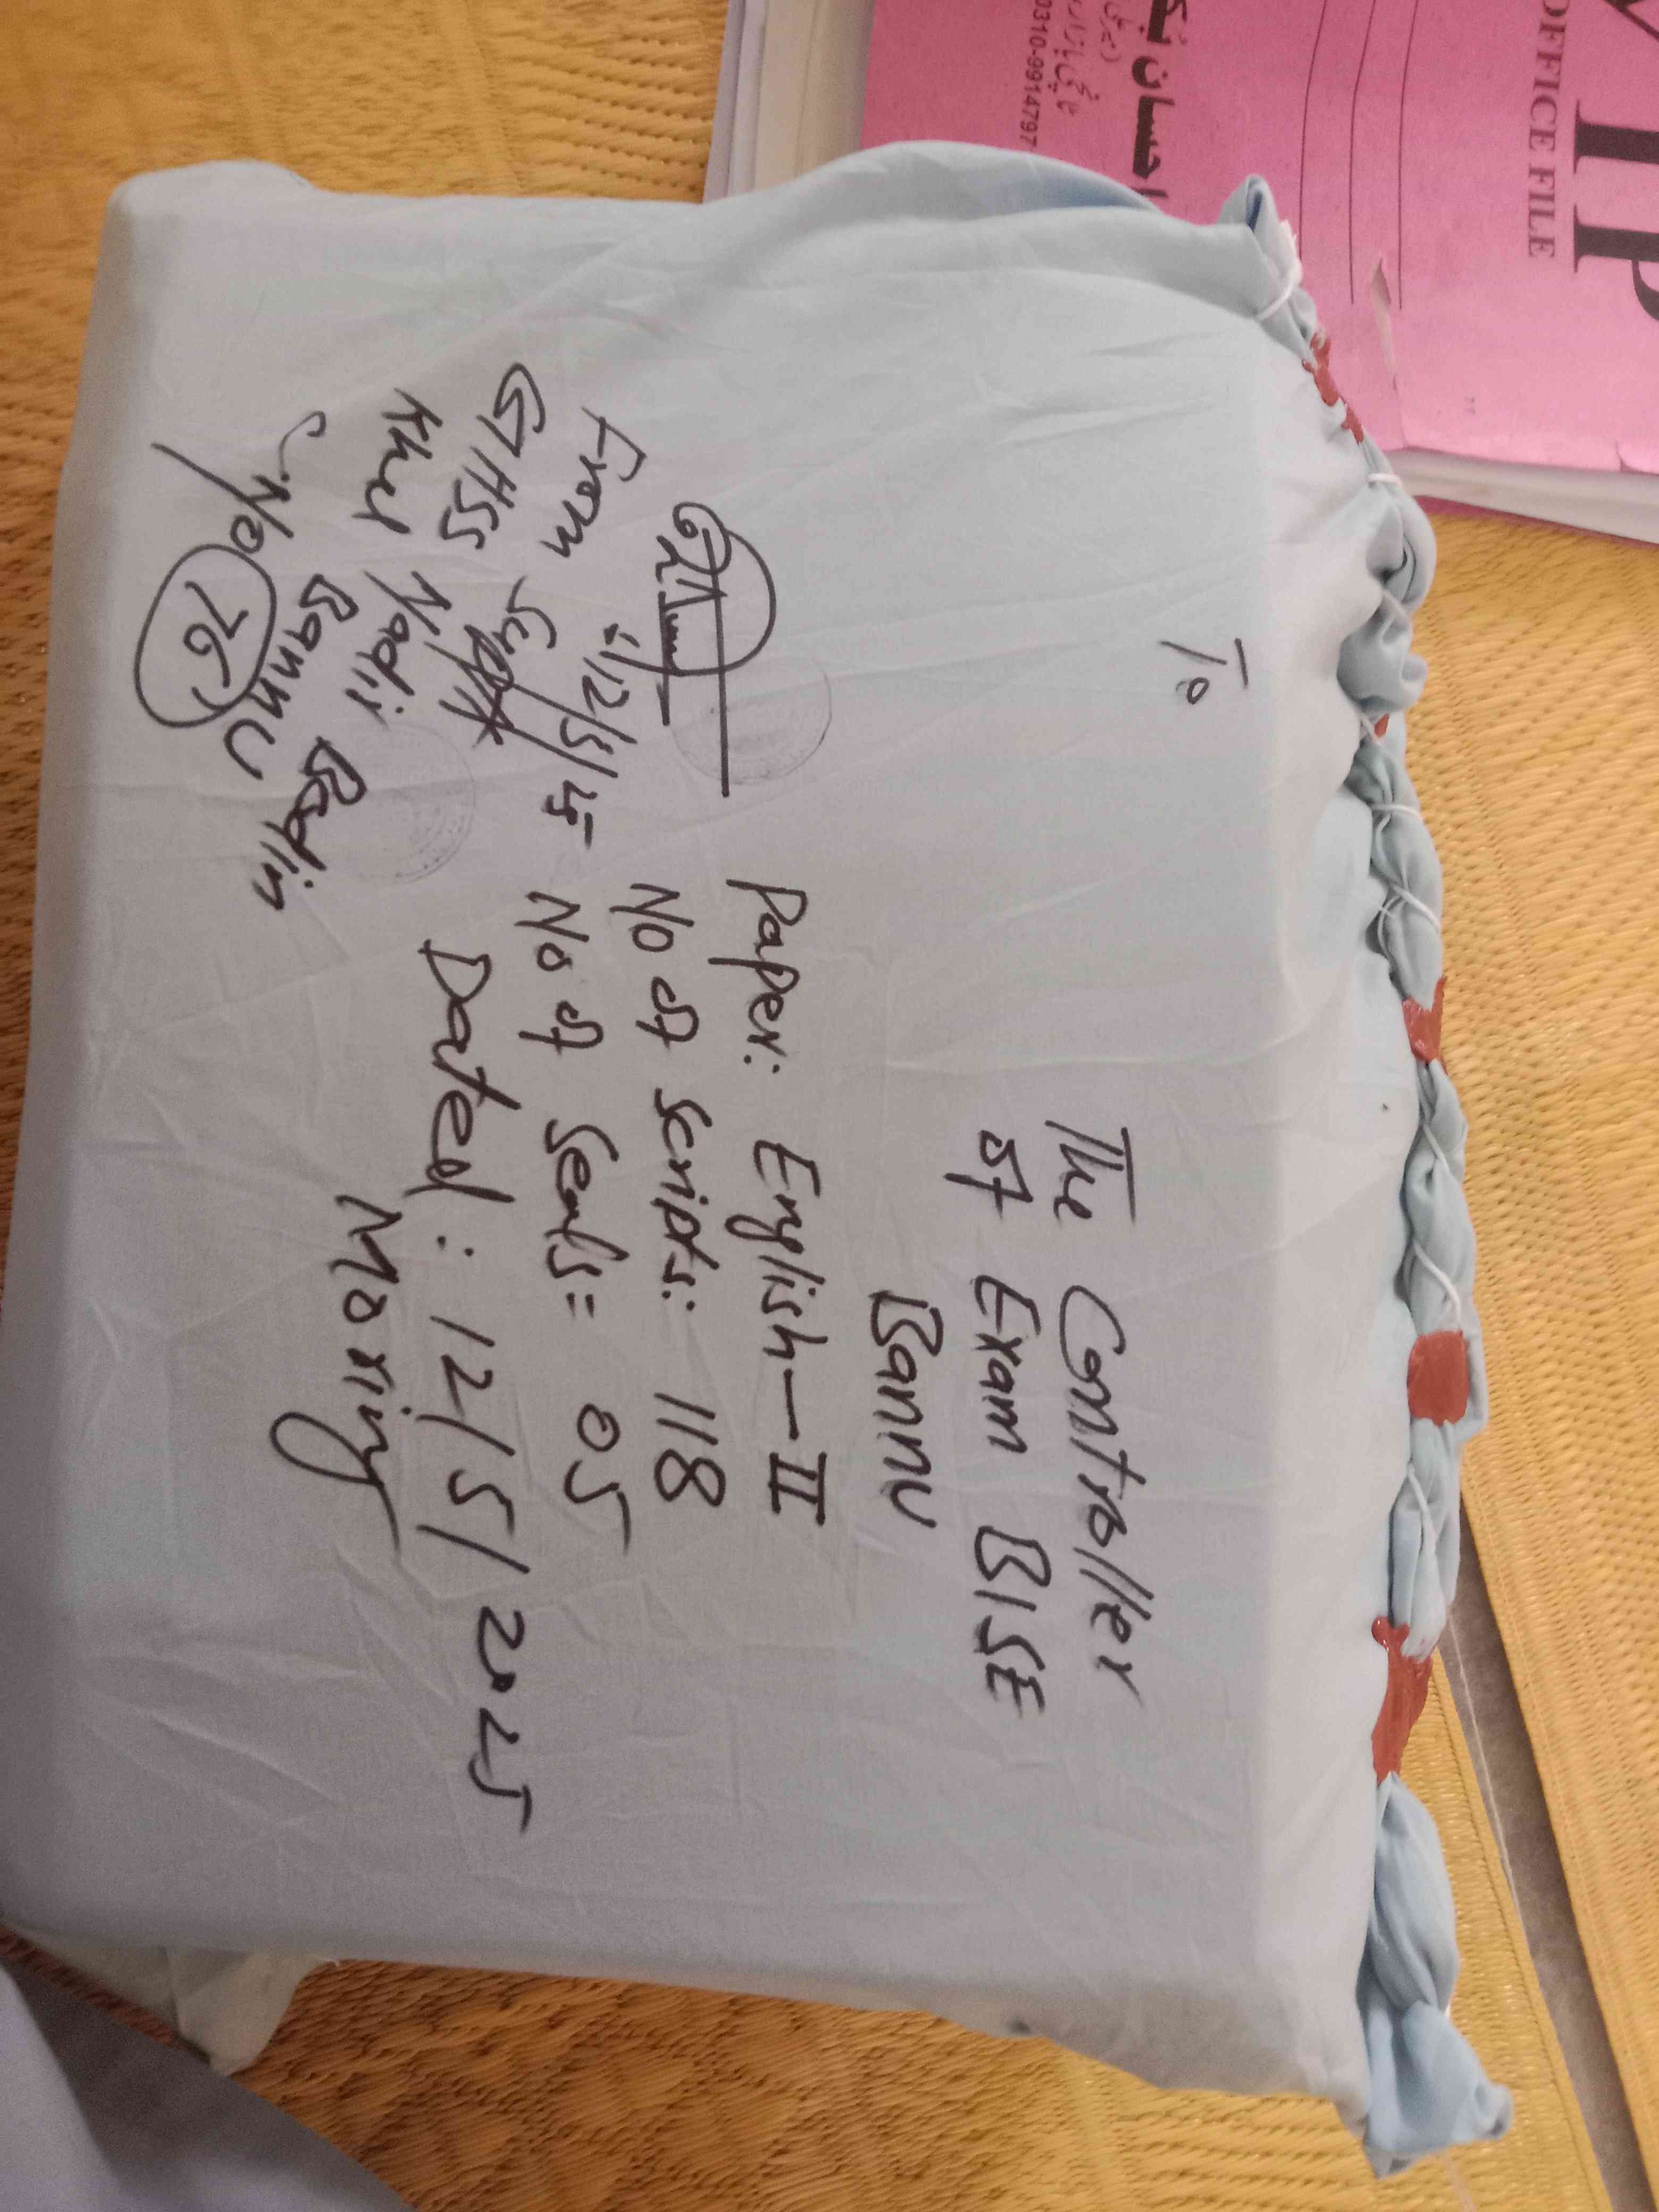 To
The Controller
of Exam BISE
Bannu
Paper: English-II
No of Scripts: 118
No of Seals= 05
Dated: 12/5/2025
Morning
12/5/25
From Suptt
GHSS Nadir Badin
Khel Bannu
No 76
VIP
OFFICE FILE
احسان
0310-9914797